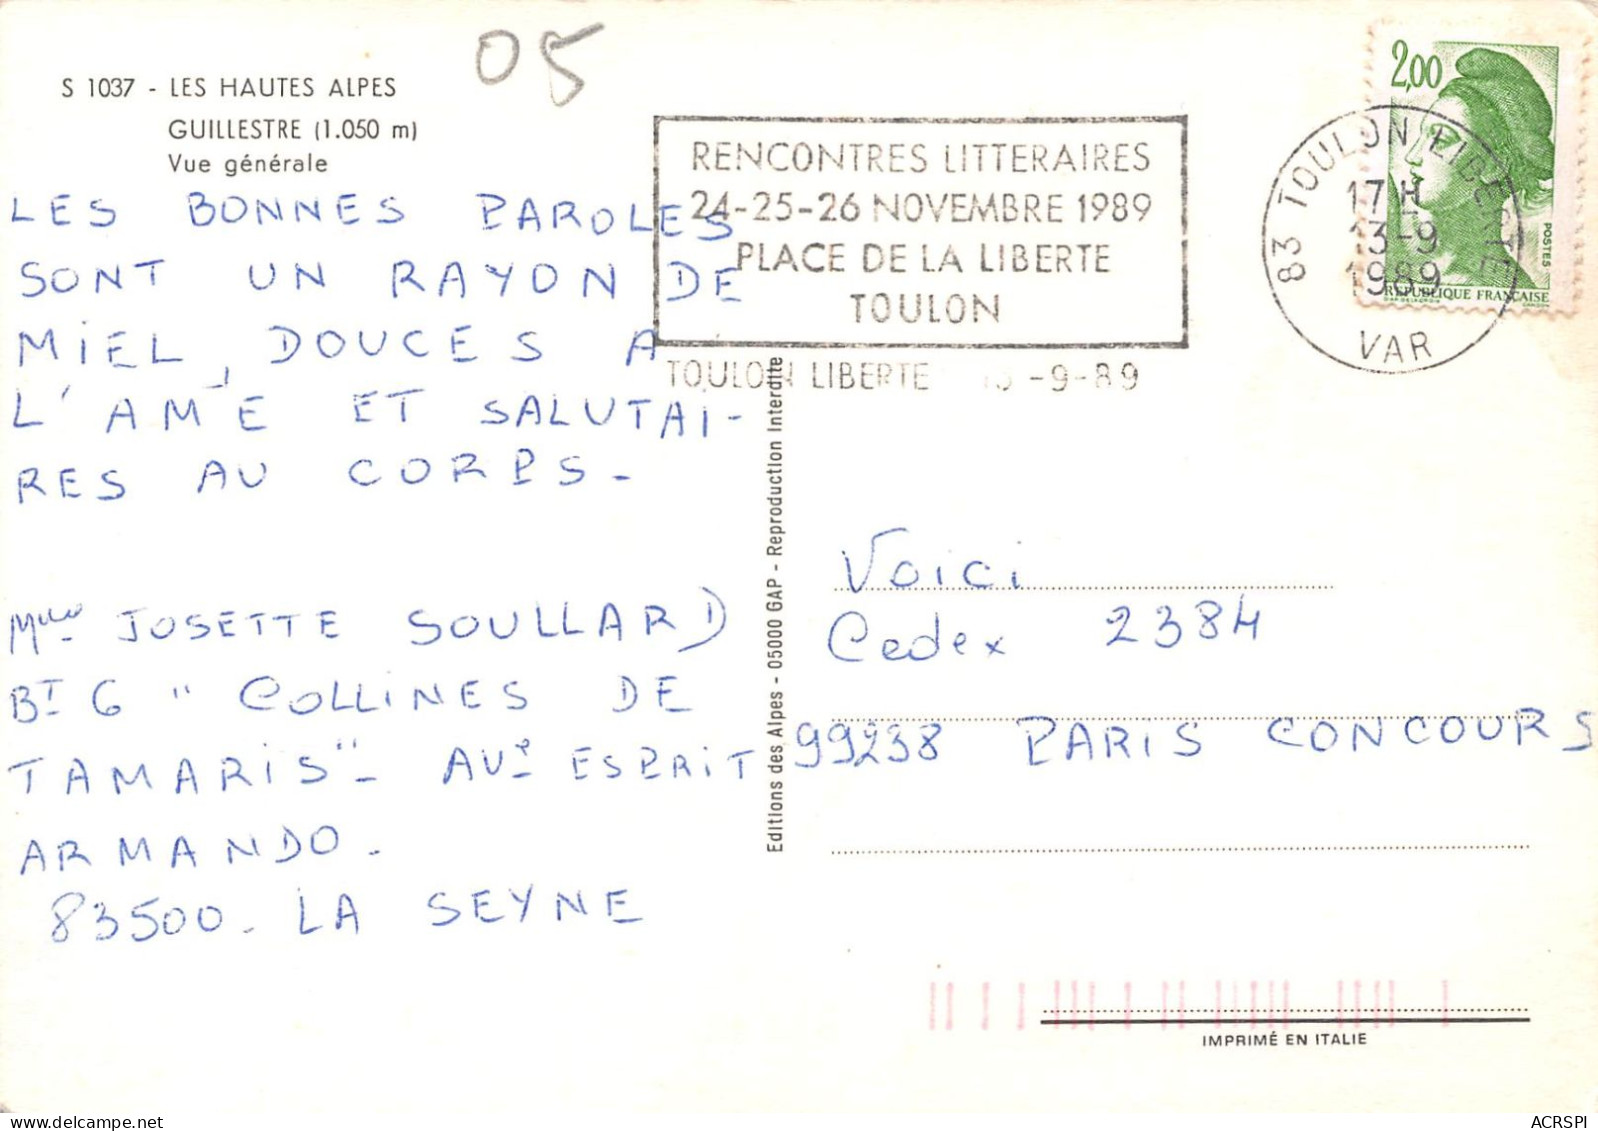 05
S 1037 - LES HAUTES ALPES
GUILLESTRE (1.050 m)
Vue générale
LES BONNES PAROLES
SONT UN RAYON DE
MIEL, DOUCES A
L'AME ET SALUTAI-
RES AU CORPS -
Mlle JOSETTE SOULLARD
BT 6 " COLLINES DE
TAMARIS" - AVe ESPRIT
ARMANDO.
83500. LA SEYNE
Editions des Alpes - 05000 GAP - Reproduction Interdite
RENCONTRES LITTERAIRES
24-25-26 NOVEMBRE 1989
PLACE DE LA LIBERTE
TOULON
TOULON LIBERTE 13-9-89
2,00
POSTES
REPUBLIQUE FRANÇAISE
83 TOULON LIBERTE
17H
13-9
1989
VAR
Voici
Cedex 2384
99238 PARIS CONCOURS
IMPRIMÉ EN ITALIE
ACRSPI